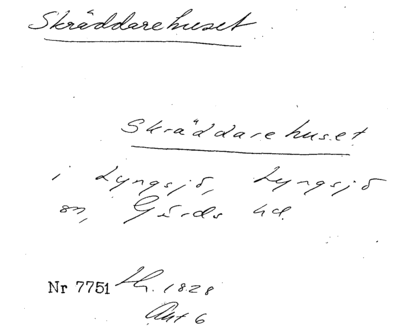 Skräddarehuset
Skräddarehuset
i Lyngsjö, Lyngsjö
sn, Gärds hd.
Nr 7751 Lh. 1828
Akt 6